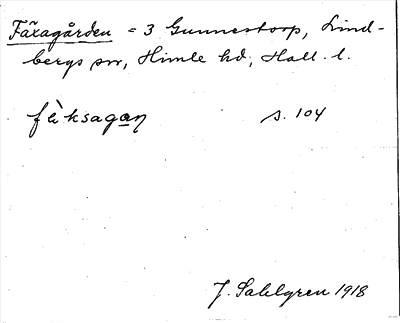 Fäxagården = 3 Gunnestorp, Lind-
bergs sn, Himle hd, Hall. l.
fèksagan s. 104
J. Sahlgren 1918